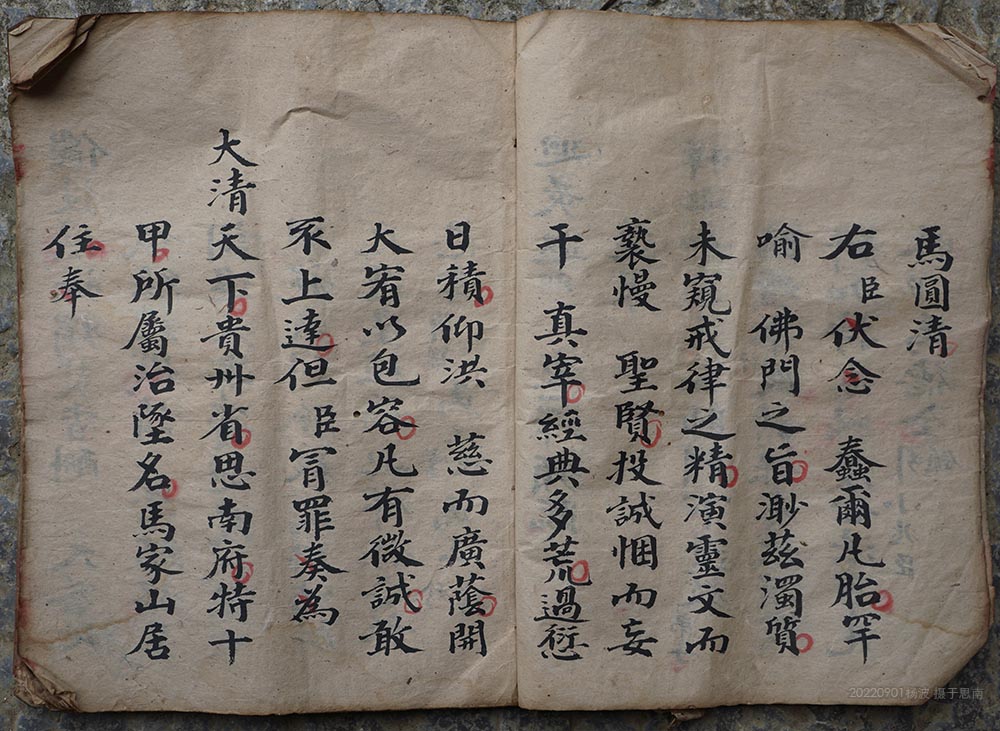 馬圓清
右臣伏念 蠢爾凡胎罕
喻 佛門之旨渺茲濁質
未窺戒律之精演靈文而
褻慢 聖賢投誠悃而妄
干 真宰經典多荒過愆
日積仰洪 慈而廣蔭開
大宥以包容凡有微誠敢
不上達但臣冐罪奏為
大清天下貴州省思南府特十
甲所屬治墜名馬家山居
住奉
20220901杨波 摄于思南